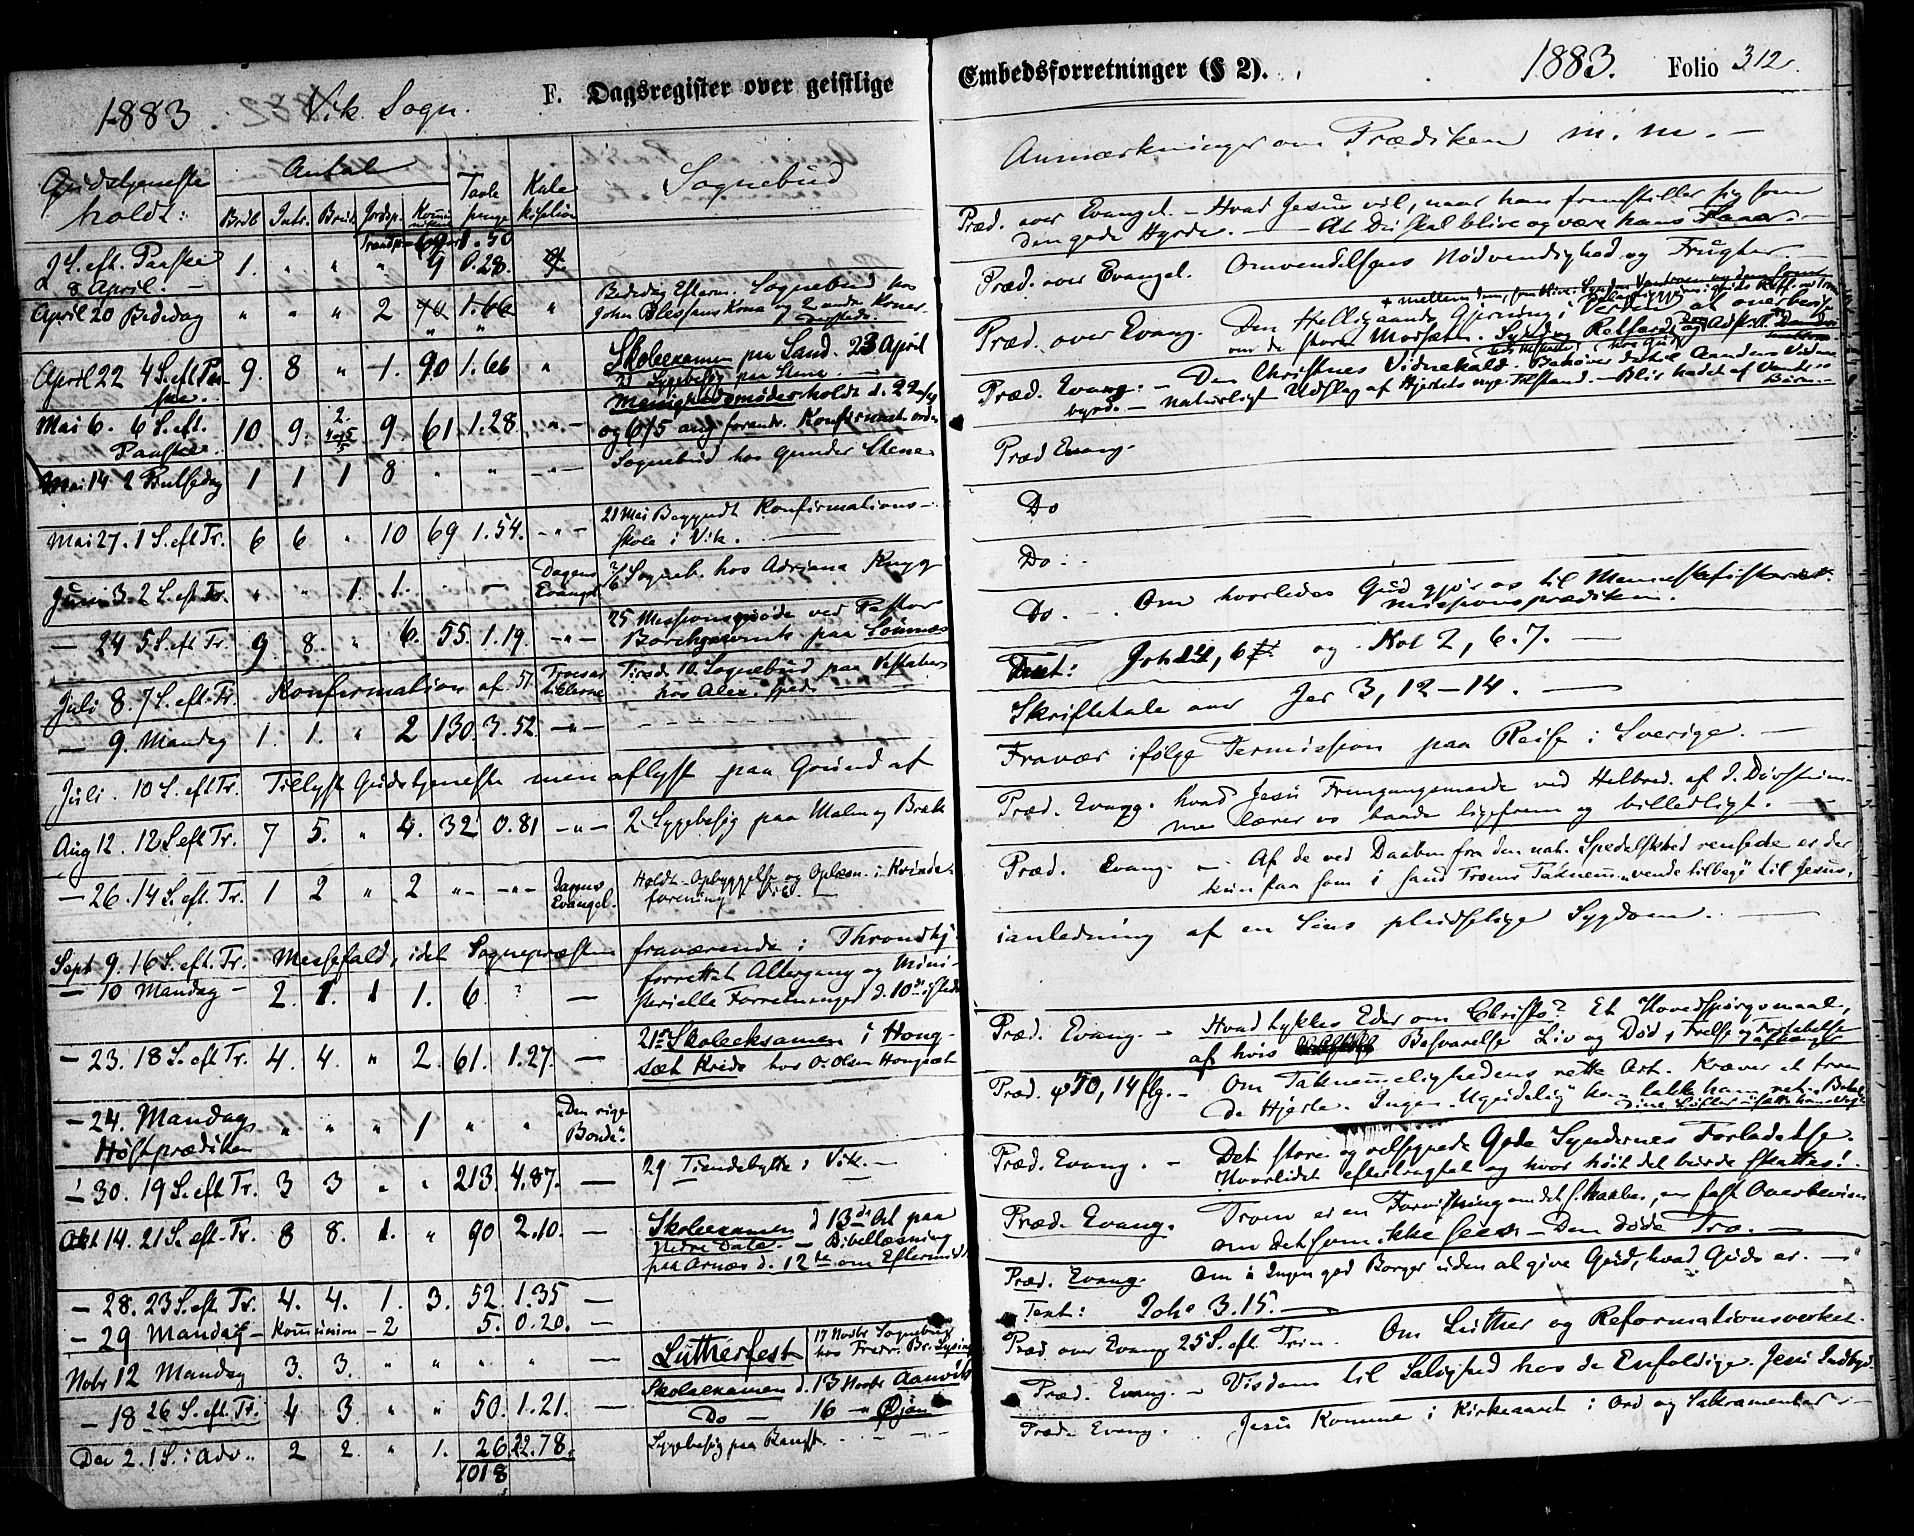 1883. Vik Sogn. F. Dagsregister over geistlige
Gudstjeneste holdt: Antal Tavle penge Kate kisation Sognebud
Brdb Intr. Brud Jordsp. Komm
2 S. eft. Paaske 1. " " " 9 0.28.
8 April. —
April 20 Bededag " " " 2 1.66 " Bededag Efterm. Sognebud hos
John Blessens Kona og 2 andre Koner
April 22 4 S. eft Paaske. 9. 8 " 1. 90 1.66 " Skoleexamen paa Sand. 23 April
2 Sygebesøg paa Stene.
Menighedsmøder holdt d. 22
Mai 6. 6 S. eft. Paaske. 10. 9. 2. 9 61 1.28. " og 6/5 ang forandr. Konfirmat. orden
Mai 14 2 Pintsedag 1 1 1 8 " " " Sognebud hos Gunder Stene
Mai 27. 1 S. eft Tr. 6 6 " 10 69 1.54. " 21 Mai Begyndt Konfirmations-
skole i Vik.
Juni 3. 2 S. eft Tr. " " 1 1. - - Dagens Evangel Sogneb. hos Adriana
— 24 5 S. eft Tr. 9 8. " 6. 55. 1.19. " 25 Missionsmøde ved Pastor
Borchgrevink paa Sømnæs
Juli 8. 7 S. eft. Tr. Konfirmation af 51 Troesartiklerne Tirsd. 10. Sognebud paa
hos Alex.
— 9. Mandag 1. 1. " 2 130. 3.52. "
Juli. 10 S. eft Tr. Tillyst Gudstjeneste men aflyst paa Grund af
Aug 12. 12 S. eft Tr. 7 5. " 4. 32 0.81 " 2 Sygebesøg paa Malm og Bræk
— 26. 14 S. eft. Tr. 1 2 " 2 " " Dagens Evangel. Holdt Opbyggelse og Oplæsn. i Kvinde-
forening i Vik.
Sept 9. 16 S. eft. Tr. Messefald, idet Sognepræsten fraværende i Throndhj.
— 10 Mandag — 2. 1. 1 1. 6. ? — forrettet Altergang og Mini-
sterielle Forretninger d. 10de istedet
— 23. 18 S. eft Tr. 4. 4. " 2. 61. 1.27. — 21de Skoleeksamen i Hong-
sæt Kreds hos O. Olsen Hongsæt
— 24. Mandag Høstprædiken " " " 1 " " "Den rige Bonde".
— 30. 19 S. eft Tr. 3 3 " " 213. 4.87. — 29 Tiendebytte i Vik. —
Okt 14. 21 S. eft. Tr. 8 8. 1. " 90 2.10. — Skoleexamen d 13de Okt paa
nedre Dale. — Bibellæsning
paa Arnæs d. 12te om Eftermidd
— 28. 23 S. eft. Tr. 4. 4. 1. 3. 52 1.35 —
— 29 Mandag — Kommunion — 2 5. 0.20. —
Novbr 12 Mandag 3. 3. " " " " — Lutherfest 17 Novbr Sognebud
hos Fredr. Br.
— 18 26 S. eft. Tr. 4 3. " " 50. 1.21. — Skoleexamen d. 13 Novbr Aanvik
Do — 16 — " Øjan
Dec 2. 1 S. i Adv. 2 2. " 1. 26. 22.78. Sygebesøg paa
1018
Embedsforretninger (§ 2). 1883. Folio 312.
Anmærkninger om Prædiken m. m. —
Præd. over Evangel. — Hvad Jesus vil, naar han fremstiller sig som
den gode Hyrde. — At Du skal blive og være hans Faar. —
Præd. over Evangel. Omvendelsens Nødvendighed og Frugter.
Præd. over Evang. Den Helligaands Gjerning i Verden at overbevise
om de store Modsætn. Synd og Retfærd.
Præd. Evang. — Den Christnes Vidnekald. Behøver dertil Aandens Vidnes-
byrd. — naturligt Udslag af Hjertets nye Tilstand. — Blir hadet af Verdens
Børn —
Præd Evang.
Do
Do.
Do. — Om hvorledes Gud gjør os til Menneskefiskere.
Missionsprædiken.
Text: og Kol 2, 6. 7. —
Skriftetale over Jer 3, 12-14. —
Fravær ifølge Permission paa Reise i Sverige. —
Præd. Evang. hvad Jesu Fremgangsmaade ved Helbred. af d. Døvstum-
me lærer os baade ligefrem og billedligt. —
Præd. Evang. — Af de ved Daaben fra den nat. Spedalskhed rensede er der
kun faa som i sand Troens Taknem. "vende tilbage" til Jesus.
ianledning af en Søns pludselige Sygdom. —
Præd. Evang. — Hvad tykkes Eder om Christo? Et Hovedspørgsmaal,
af hvis Besvarelse Liv og Død, Frelse og Fortabelse
afhænger
Præd. ψ 50, 14 flg. — Om Taknemelighedens rette Art. Kræver et from-
De Hjerte. Ingen "Ugudelig" kan takke ham ret. Betal
dine Løfter
Præd. Evang. — Det store og velsignede Gode Syndernes Forladelse.
Hvorlidet eftertragtet og hvor høit det burde skattes!
Præd. Evang. Troen er en Forvisning om det s. haabes, en fast Overbevisn
om det som ikke sees — Den døde Tro. —
Præd. Evang. Om Ingen god Borger uden at give Gud, hvad Guds er. —
Text: Joh. 3. 15. —
Præd over Evang 25 S. eft. Trin. Om Luther og Reformationsverket.
Præd. Evang. — Visdom til Salighed hos de Enfoldige. Jesu Indbyd.
Præd. Evang. Jesu Komme i Kirkeaaret i Ord og Sakramenter —